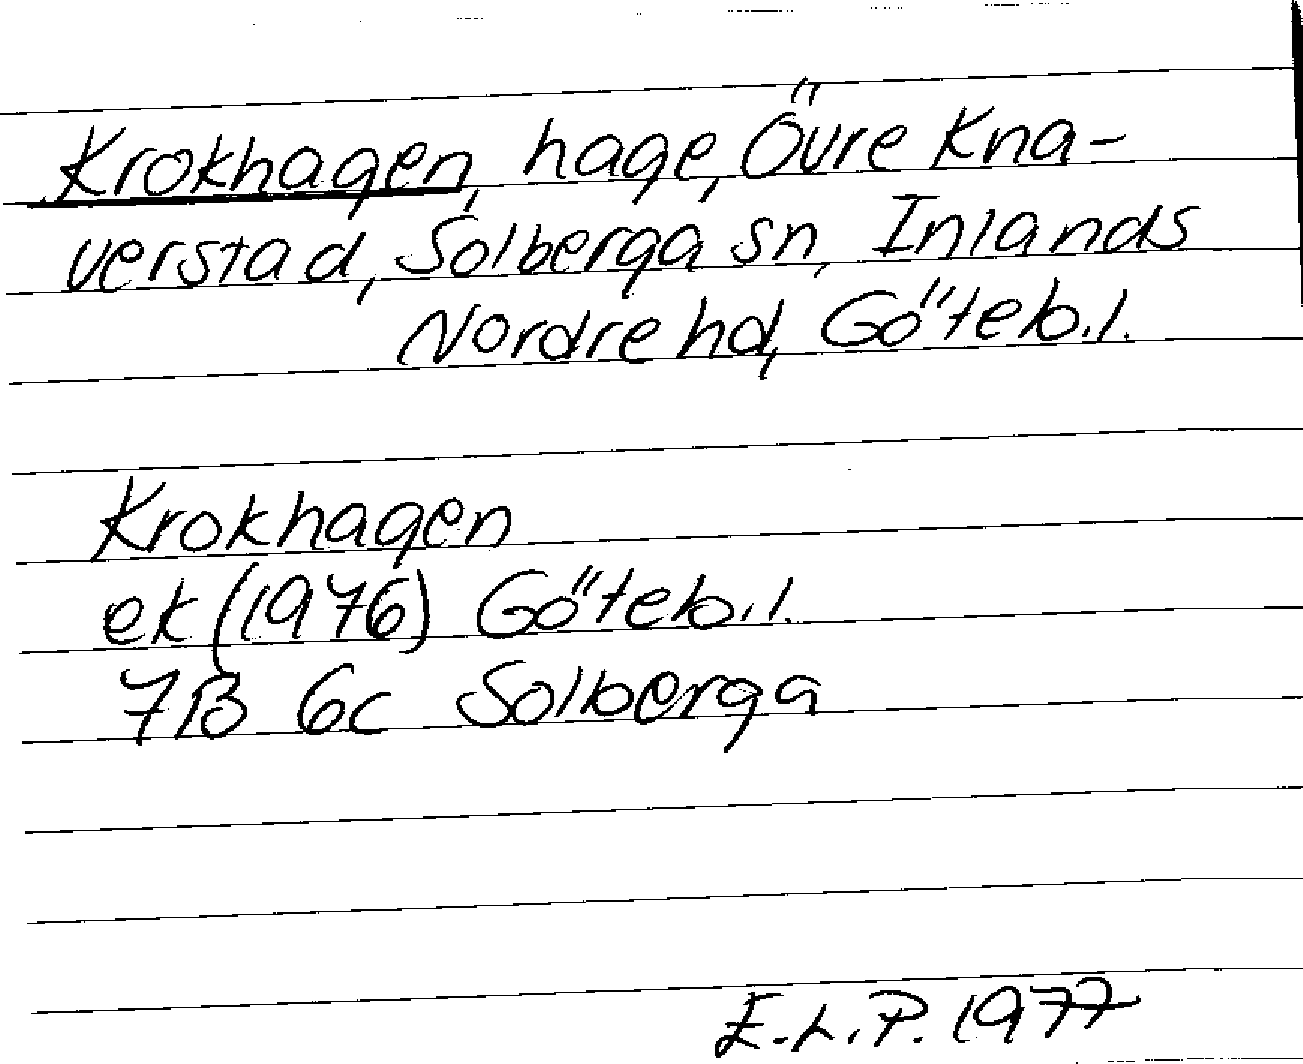 Krokhagen, hage, Övre Kna-
verstad, Solberga sn, Inlands
Nordre hd, Göteb.l.
Krokhagen
ek (1976) Göteb.l.
7B 6c Solberga
E.L.P. 1977